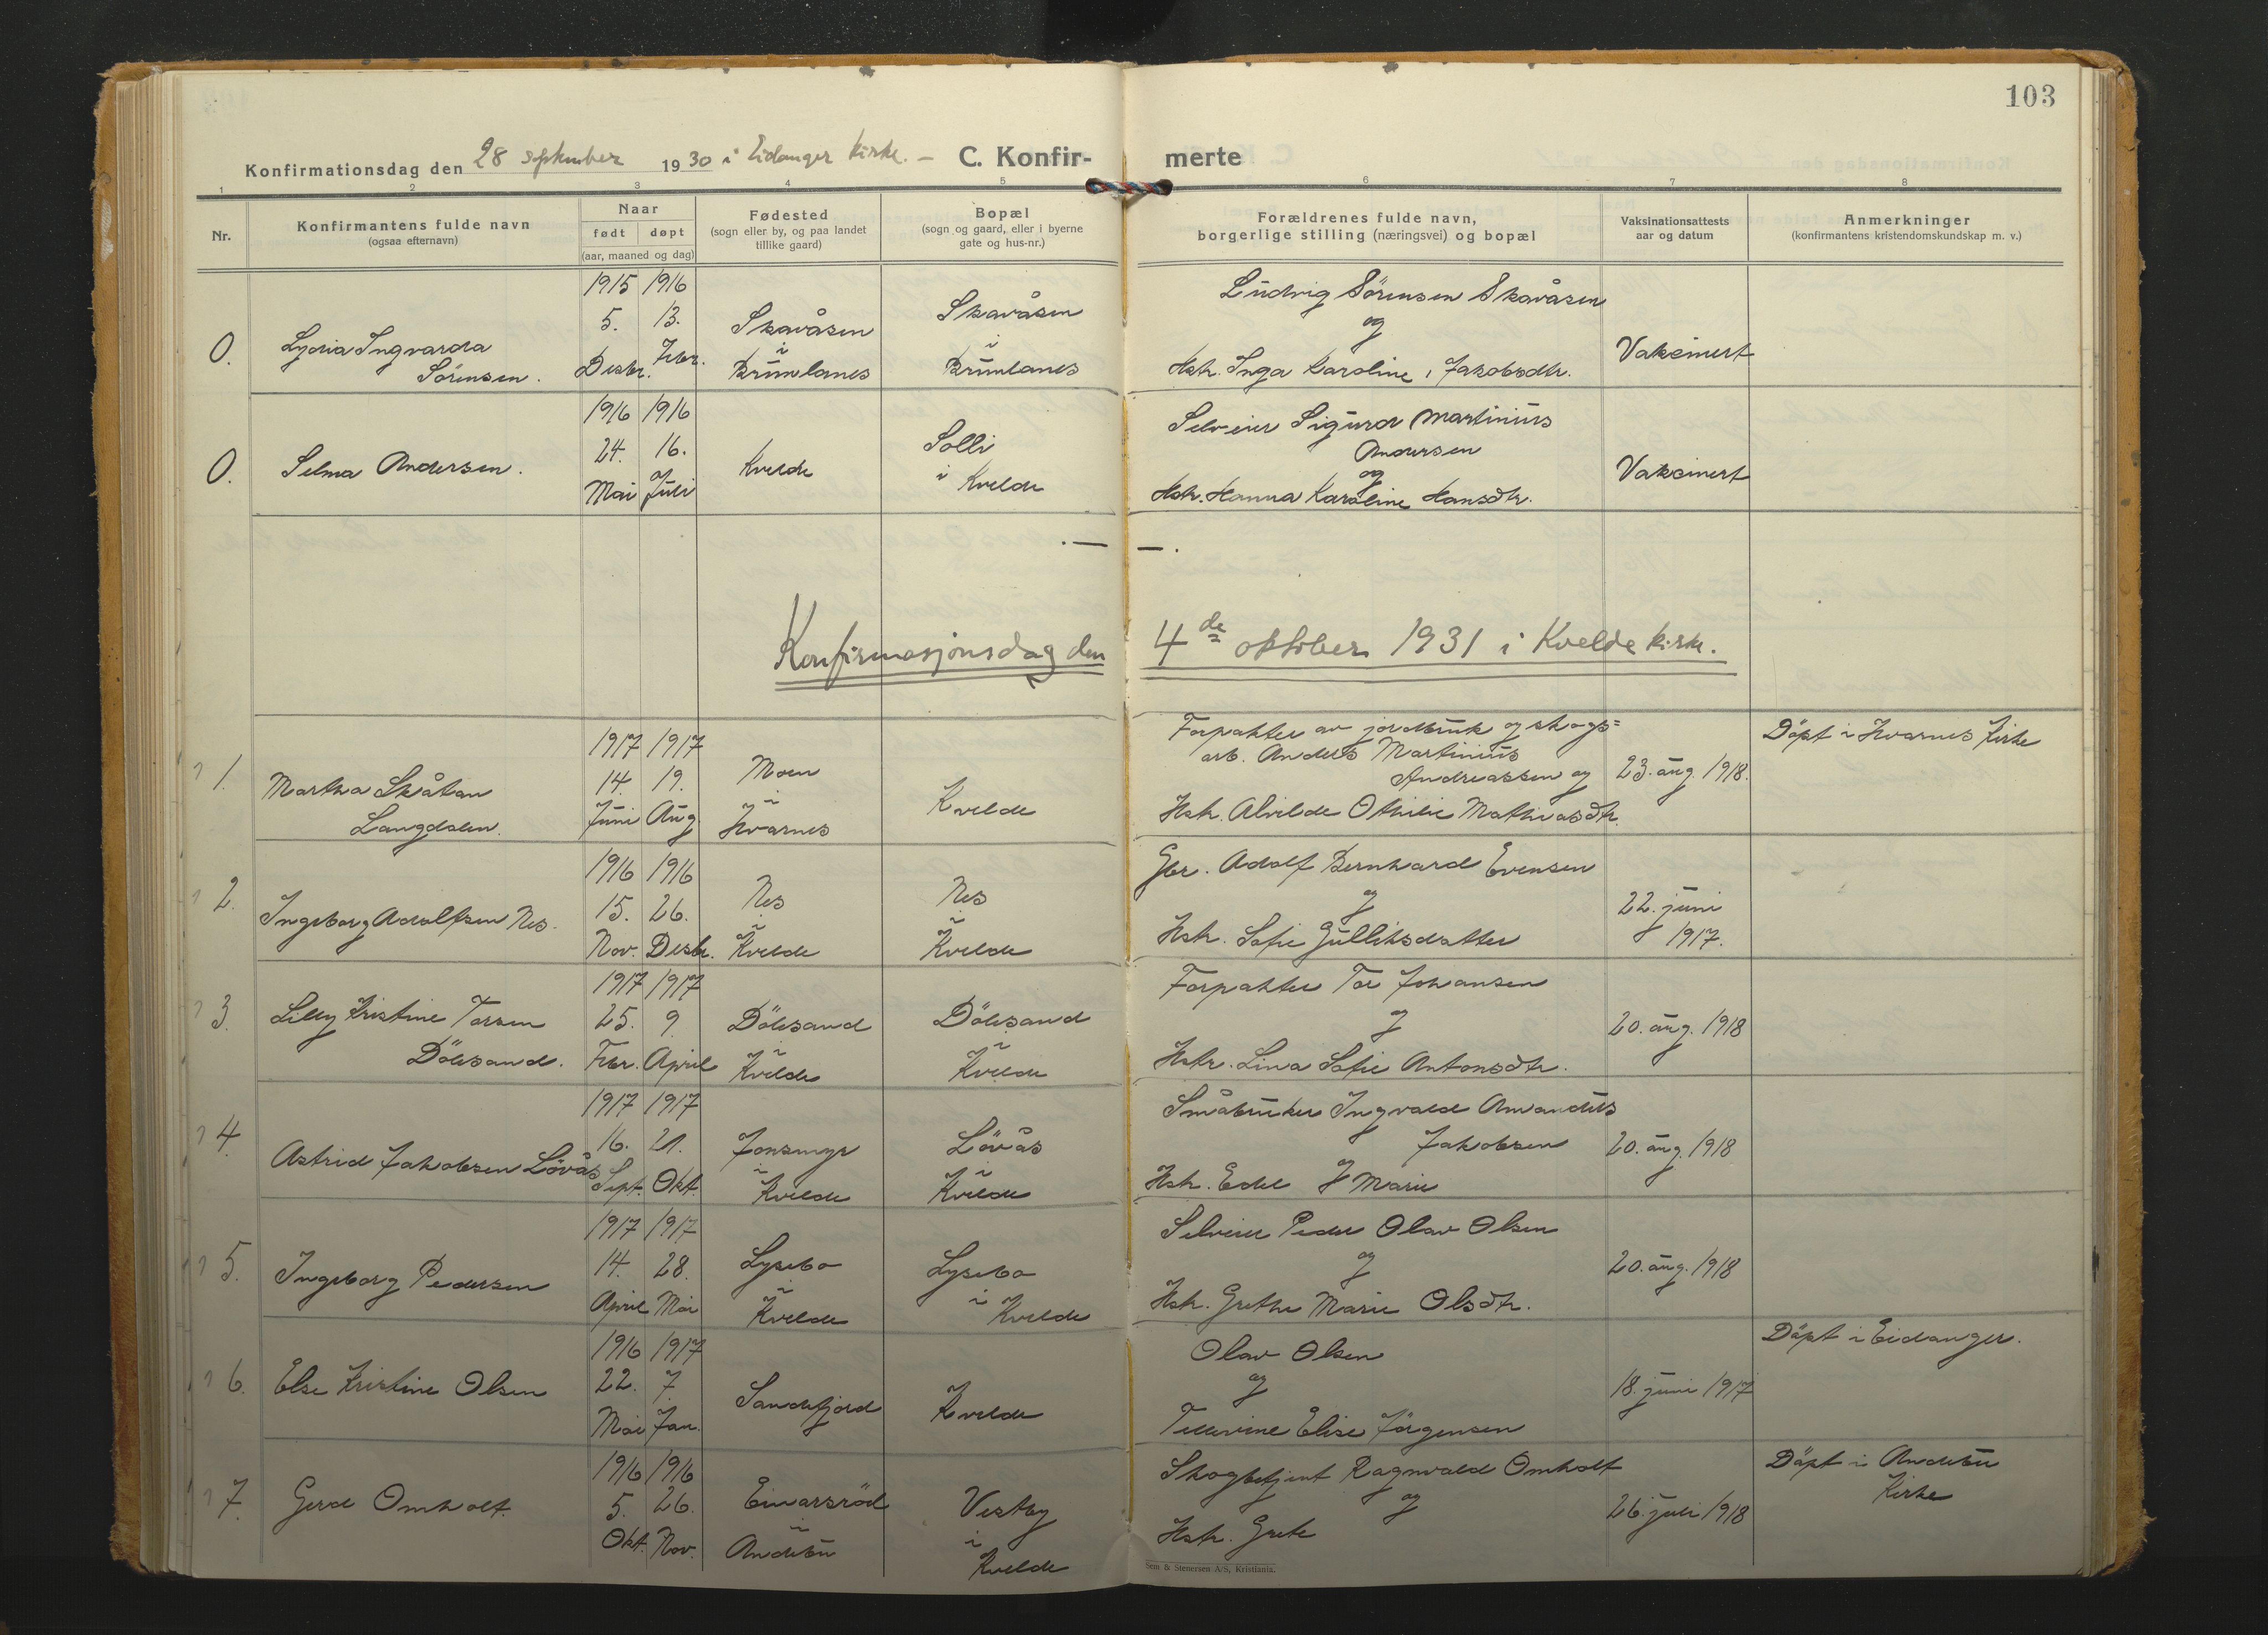 103
Konfirmationsdag den 28 september 1930 i Eidanger kirke. – C. Konfir-merte
1 2 3 4 5 6 7 8
Nr.
Konfirmantens fulde navn
(ogsaa efternavn)
Naar
født døpt
(aar, maaned og dag)
Fødested
(sogn eller by, og paa landet
tillike gaard)
Bopæl
(sogn og gaard, eller i byerne
gate og hus-nr.)
Forældrenes fulde navn,
borgerlige stilling (næringsvei) og bopæl
Vaksinationsattests
aar og datum
Anmerkninger
(konfirmantens kristendomskundskap m. v.)
O.
Lydia Ingvarda
Sörensen.
1915 1916
5. 13.
Desbr. Febr.
Skavåsen
i
Brunlanes
Skavåsen
i
Brunlanes
Ludvig Sörensen Skavåsen
og
Hstr. Inga Karoline, Jakobsdtr.
Vaksinert
O.
Selma Andersen.
1916 1916
24. 16.
Mai Juli
Kvelde
Solli
i Kvelde
Selveier Sigurd Martinius
Andersen
og
Hstr. Hanna Karoline Hansdtr.
Vaksinert
Konfirmasjonsdag den 4de oktober 1931 i Kvelde kirke.
1.
Martha Skåtan
Langdalen.
1917 1917
14. 19.
Juni Aug
Moen
i
Hvarnes
Kvelde
Forpakter av jordbruk og skogs=
arb. Anders Martinius
Andreassen og
Hstr. Alvilde Othilie Mathiasdtr.
23. aug. 1918.
Döpt i Hvarnes Kirke
2.
Ingeborg Adolfsen Nes.
1916 1916
15. 26.
Nov. Desbr.
Nes
i
Kvelde
Nes
i
Kvelde
Gbr. Adolf Bernhard Evensen
og
Hstr. Sofie Gulliksdatter
22. juni
1917.
3.
Lilly Kristine Torsen
Dölesand.
1917 1917
25. 9.
Febr. April
Dölesand
i
Kvelde
Dölesand
i
Kvelde
Forpakter Tor Johansen
og
Hstr. Lina Sofie Antonsdtr.
20. aug. 1918
4.
Astrid Jakobsen Lövås
1917 1917
16. 21.
Sept. Okt.
Jonsmyr
i
Kvelde
Lövås
i
Kvelde
Småbruker Ingvald Amandus
Jakobsen
og
Hstr. Edel Marie
20. aug. 1918
5.
Ingeborg Pedersen
1917 1917
14. 28.
April Mai
Lysebo
i
Kvelde
Lysebo
i
Kvelde
Selveier Peder Olav Olsen
og
Hstr. Grethe Marie Olsdtr.
20. aug. 1918
6.
Else Kristine Olsen
1916 1917
22. 7.
Mai Jan.
Sandefjord
Kvelde
Olav Olsen
og
Elise Jörgensen
18. juni 1917
Döpt i Eidanger.
7.
Gerd Omholt.
1916 1916
5. 26.
Okt. Nov.
Einarsröd
i
Andebu
Vestby
i
Kvelde
Skogbetjent Ragnvald Omholt
og
Hstr. Grete
26. juli 1918
Döpt i Andebu
Kirke
Sem & Stenersen A/S, Kristiania.